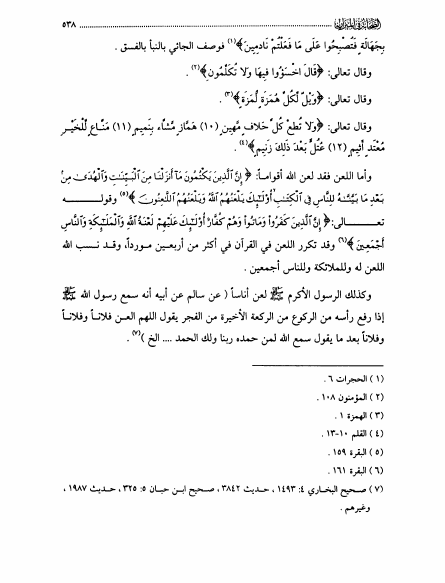 الصحابة في الميزان ٥٣٨
بِجَهَالَةٍ فَتُصْبِحُوا عَلَى مَا فَعَلْتُمْ نَادِمِينَ﴾(١) فوصف الجائي بالنبأ بالفسق .
وقال تعالى: ﴿قَالَ اخْسَؤُوا فِيهَا وَلَا تُكَلِّمُونِ﴾(٢).
وقال تعالى: ﴿وَيْلٌ لِّكُلِّ هُمَزَةٍ لُّمَزَةٍ﴾(٣) .
وقال تعالى: ﴿وَلَا تُطِعْ كُلَّ حَلَّافٍ مَّهِينٍ (١٠) هَمَّازٍ مَّشَّاءٍ بِنَمِيمٍ (١١) مَنَّاعٍ لِّلْخَيْرِ
مُعْتَدٍ أَثِيمٍ (١٢) عُتُلٍّ بَعْدَ ذَلِكَ زَنِيمٍ﴾(٤) .
وأما اللعن فقد لعن الله أقواماً: ﴿ إِنَّ الَّذِينَ يَكْتُمُونَ مَا أَنزَلْنَا مِنَ الْبَيِّنَاتِ وَالْهُدَى مِن
بَعْدِ مَا بَيَّنَّاهُ لِلنَّاسِ فِي الْكِتَابِ أُوْلَئِكَ يَلْعَنُهُمُ اللَّهُ وَيَلْعَنُهُمُ اللَّاعِنُونَ ﴾(٥) وقوله
تعالى: ﴿إِنَّ الَّذِينَ كَفَرُوا وَمَاتُوا وَهُمْ كُفَّارٌ أُوْلَئِكَ عَلَيْهِمْ لَعْنَةُ اللَّهِ وَالْمَلَائِكَةِ وَالنَّاسِ
أَجْمَعِينَ ﴾(٦) وقد تكرر اللعن في القرآن في أكثر من أربعين مورداً، وقد نسب الله
اللعن له وللملائكة وللناس أجمعين .
وكذلك الرسول الأكرم ﷺ لعن أناساً ( عن سالم عن أبيه أنه سمع رسول الله ﷺ
إذا رفع رأسه من الركوع من الركعة الأخيرة من الفجر يقول اللهم العن فلاناً وفلاناً
وفلاناً بعد ما يقول سمع الله لمن حمده ربنا ولك الحمد .... الخ )(٧) .
(١) الحجرات ٦ .
(٢) المؤمنون ١٠٨ .
(٣) الهمزة ١ .
(٤) القلم ١٠-١٣ .
(٥) البقرة ١٥٩ .
(٦) البقرة ١٦١ .
(٧) صحيح البخاري ٤: ١٤٩٣ ، حديث ٣٨٤٢ ، صحيح ابن حبان ٥: ٣٢٥ ، حديث ١٩٨٧ ،
وغيرهم .